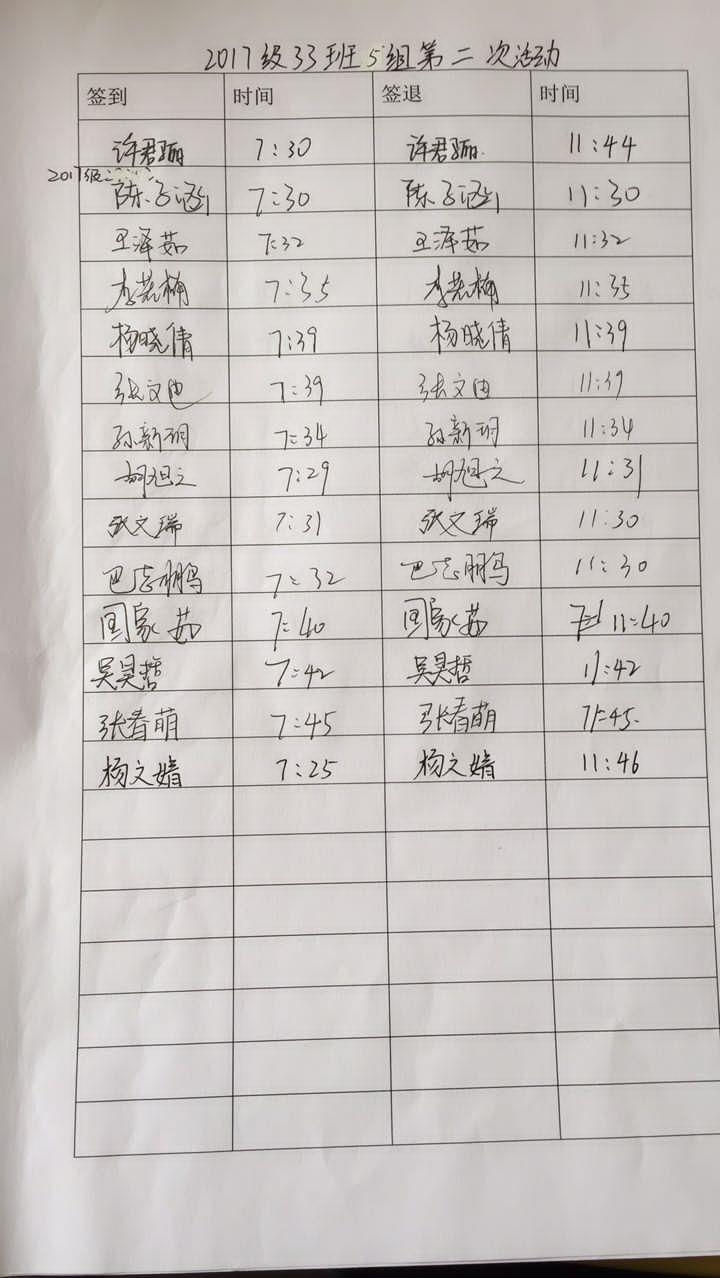 2017级33班5组第二次活动
签到 时间 签退 时间
许君骊 7:30 许君骊 11:44
2017级
陈子涵 7:30 陈子涵 11:30
王泽茹 7:32 王泽茹 11:32
李若楠 7:35 李若楠 11:35
杨晓倩 7:39 杨晓倩 11:39
张文迪 7:39 张文迪 11:39
孙新玥 7:34 孙新玥 11:34
胡旭之 7:29 胡旭之 11:31
张文瑞 7:31 张文瑞 11:30
巴志鹏 7:32 巴志鹏 11:30
国家茹 7:40 国家茹 11:40
吴昊哲 7:42 吴昊哲 11:42
张春萌 7:45 张春萌 11:45.
杨文婧 7:25 杨文婧 11:46